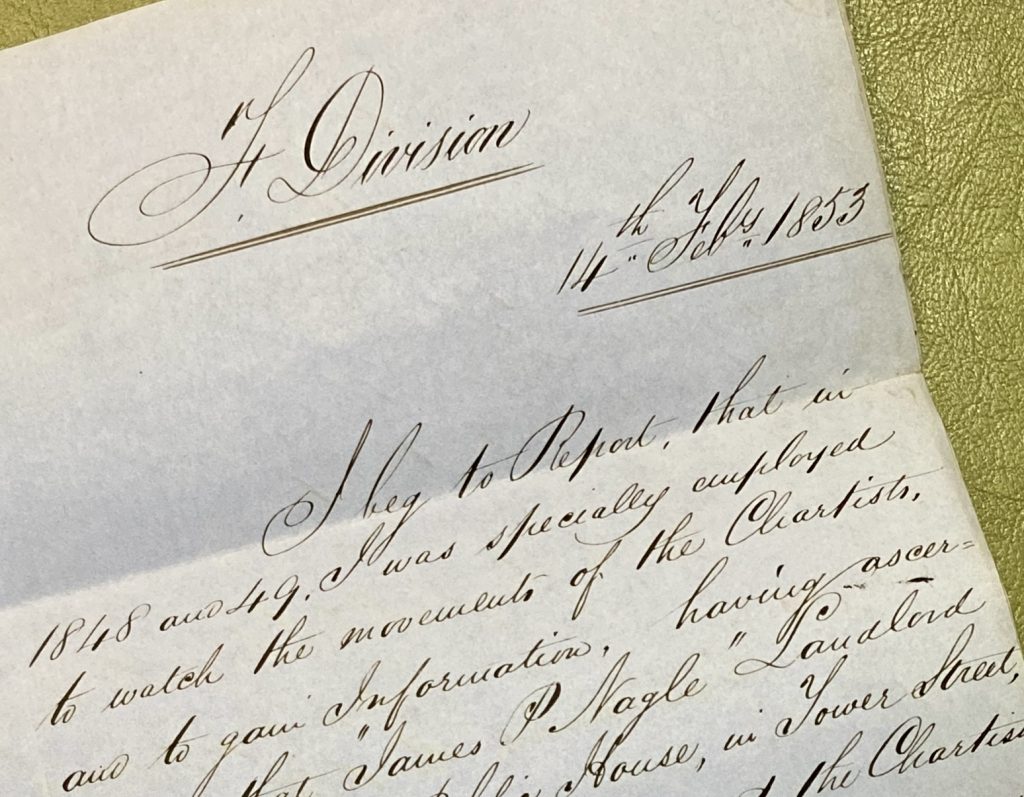 F. Division
14th Feby 1853
I beg to Report, that in
1848 and 49, I was specially employed
to watch the movements of the Chartists,
and to gain Information, having ascer=
that "James P Nagle" Landlord
House, in Tower Street,
the Chartis